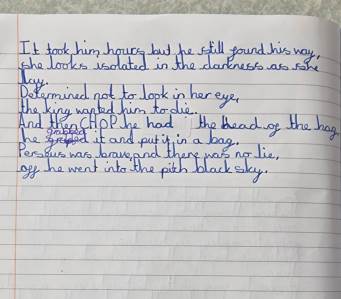 It took him hours but he still found his way,
she looks isolated in the darkness as she
lay.
Determined not to look in her eye,
the king wanted him to die.
And then CHOP he had the head of the hag
he grabbed it and put it in a bag.
Perseus was brave, and there was no lie,
off he went into the pitch black sky.